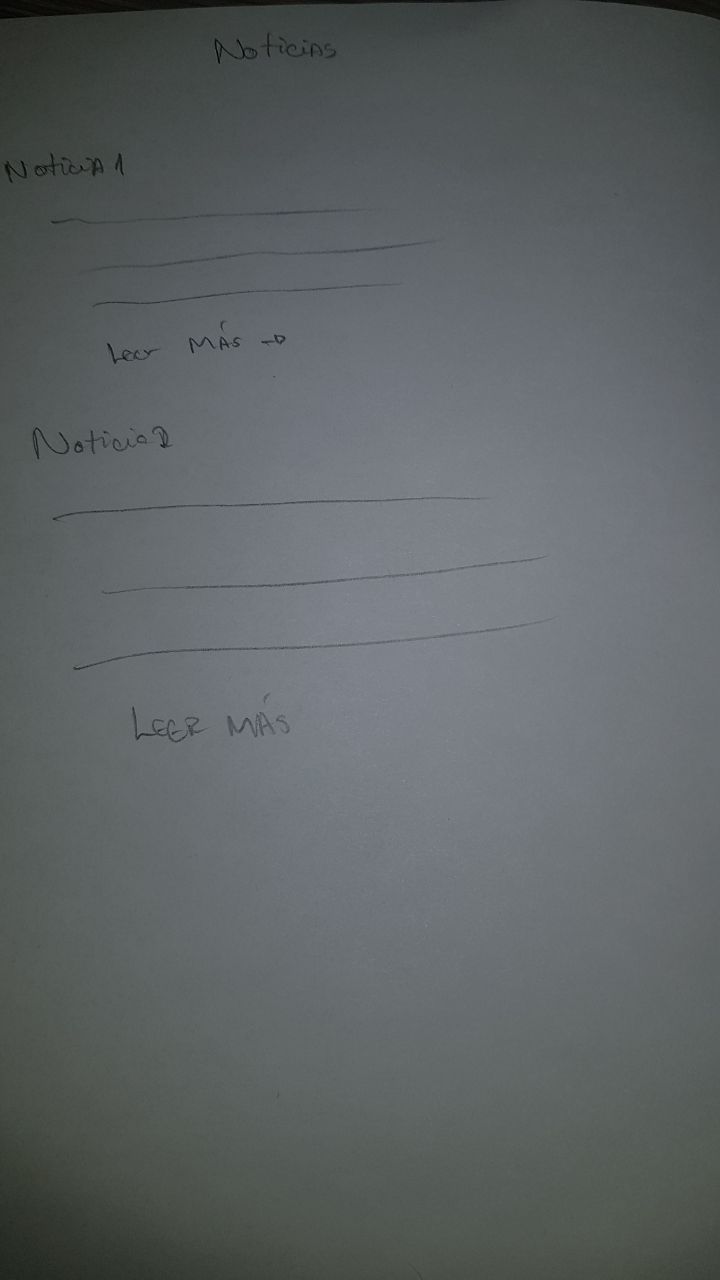 Noticias
Noticia 1
Leer MÁS →
Noticia 2
LEER MÁS